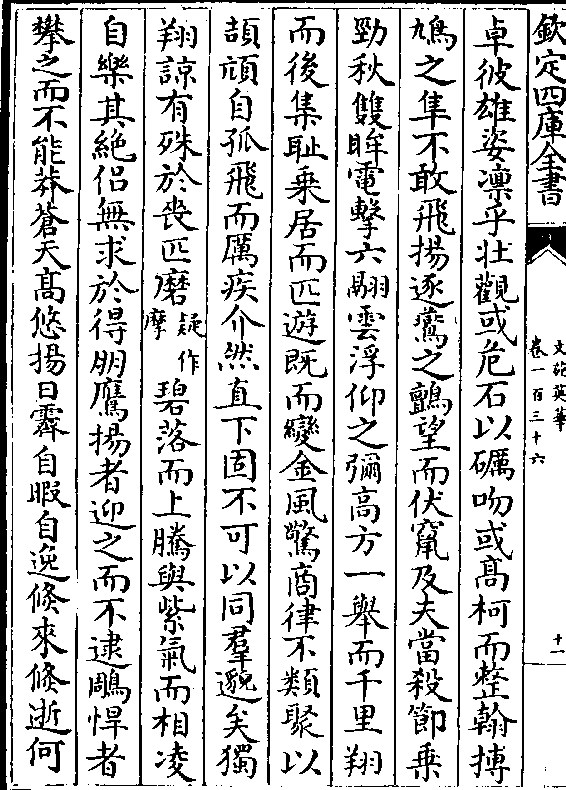 欽定四庫全書
文苑英華
卷一百三十六
十一
卓彼雄姿凛乎壯觀或危石以礪吻或髙柯而整翰搏
鳩之隼不敢飛揚逐鷰之鸇望而伏竄及夫當殺節乗
勁秋雙眸電擊六翮雲浮仰之彌高方一舉而千里翔
而後集耻乗居而匹遊既而變金風驚商律不類聚以
頡頏自孤飛而厲疾介然直下固不可以同羣邈矣獨
翔諒有殊於喪匹磨疑作摩碧落而上騰與紫氣而相凌
自樂其絶侣無求於得朋鷹揚者迎之而不逮鵰悍者
攀之而不能莽蒼天高悠揚日霽自暇自逸倏來倏逝何